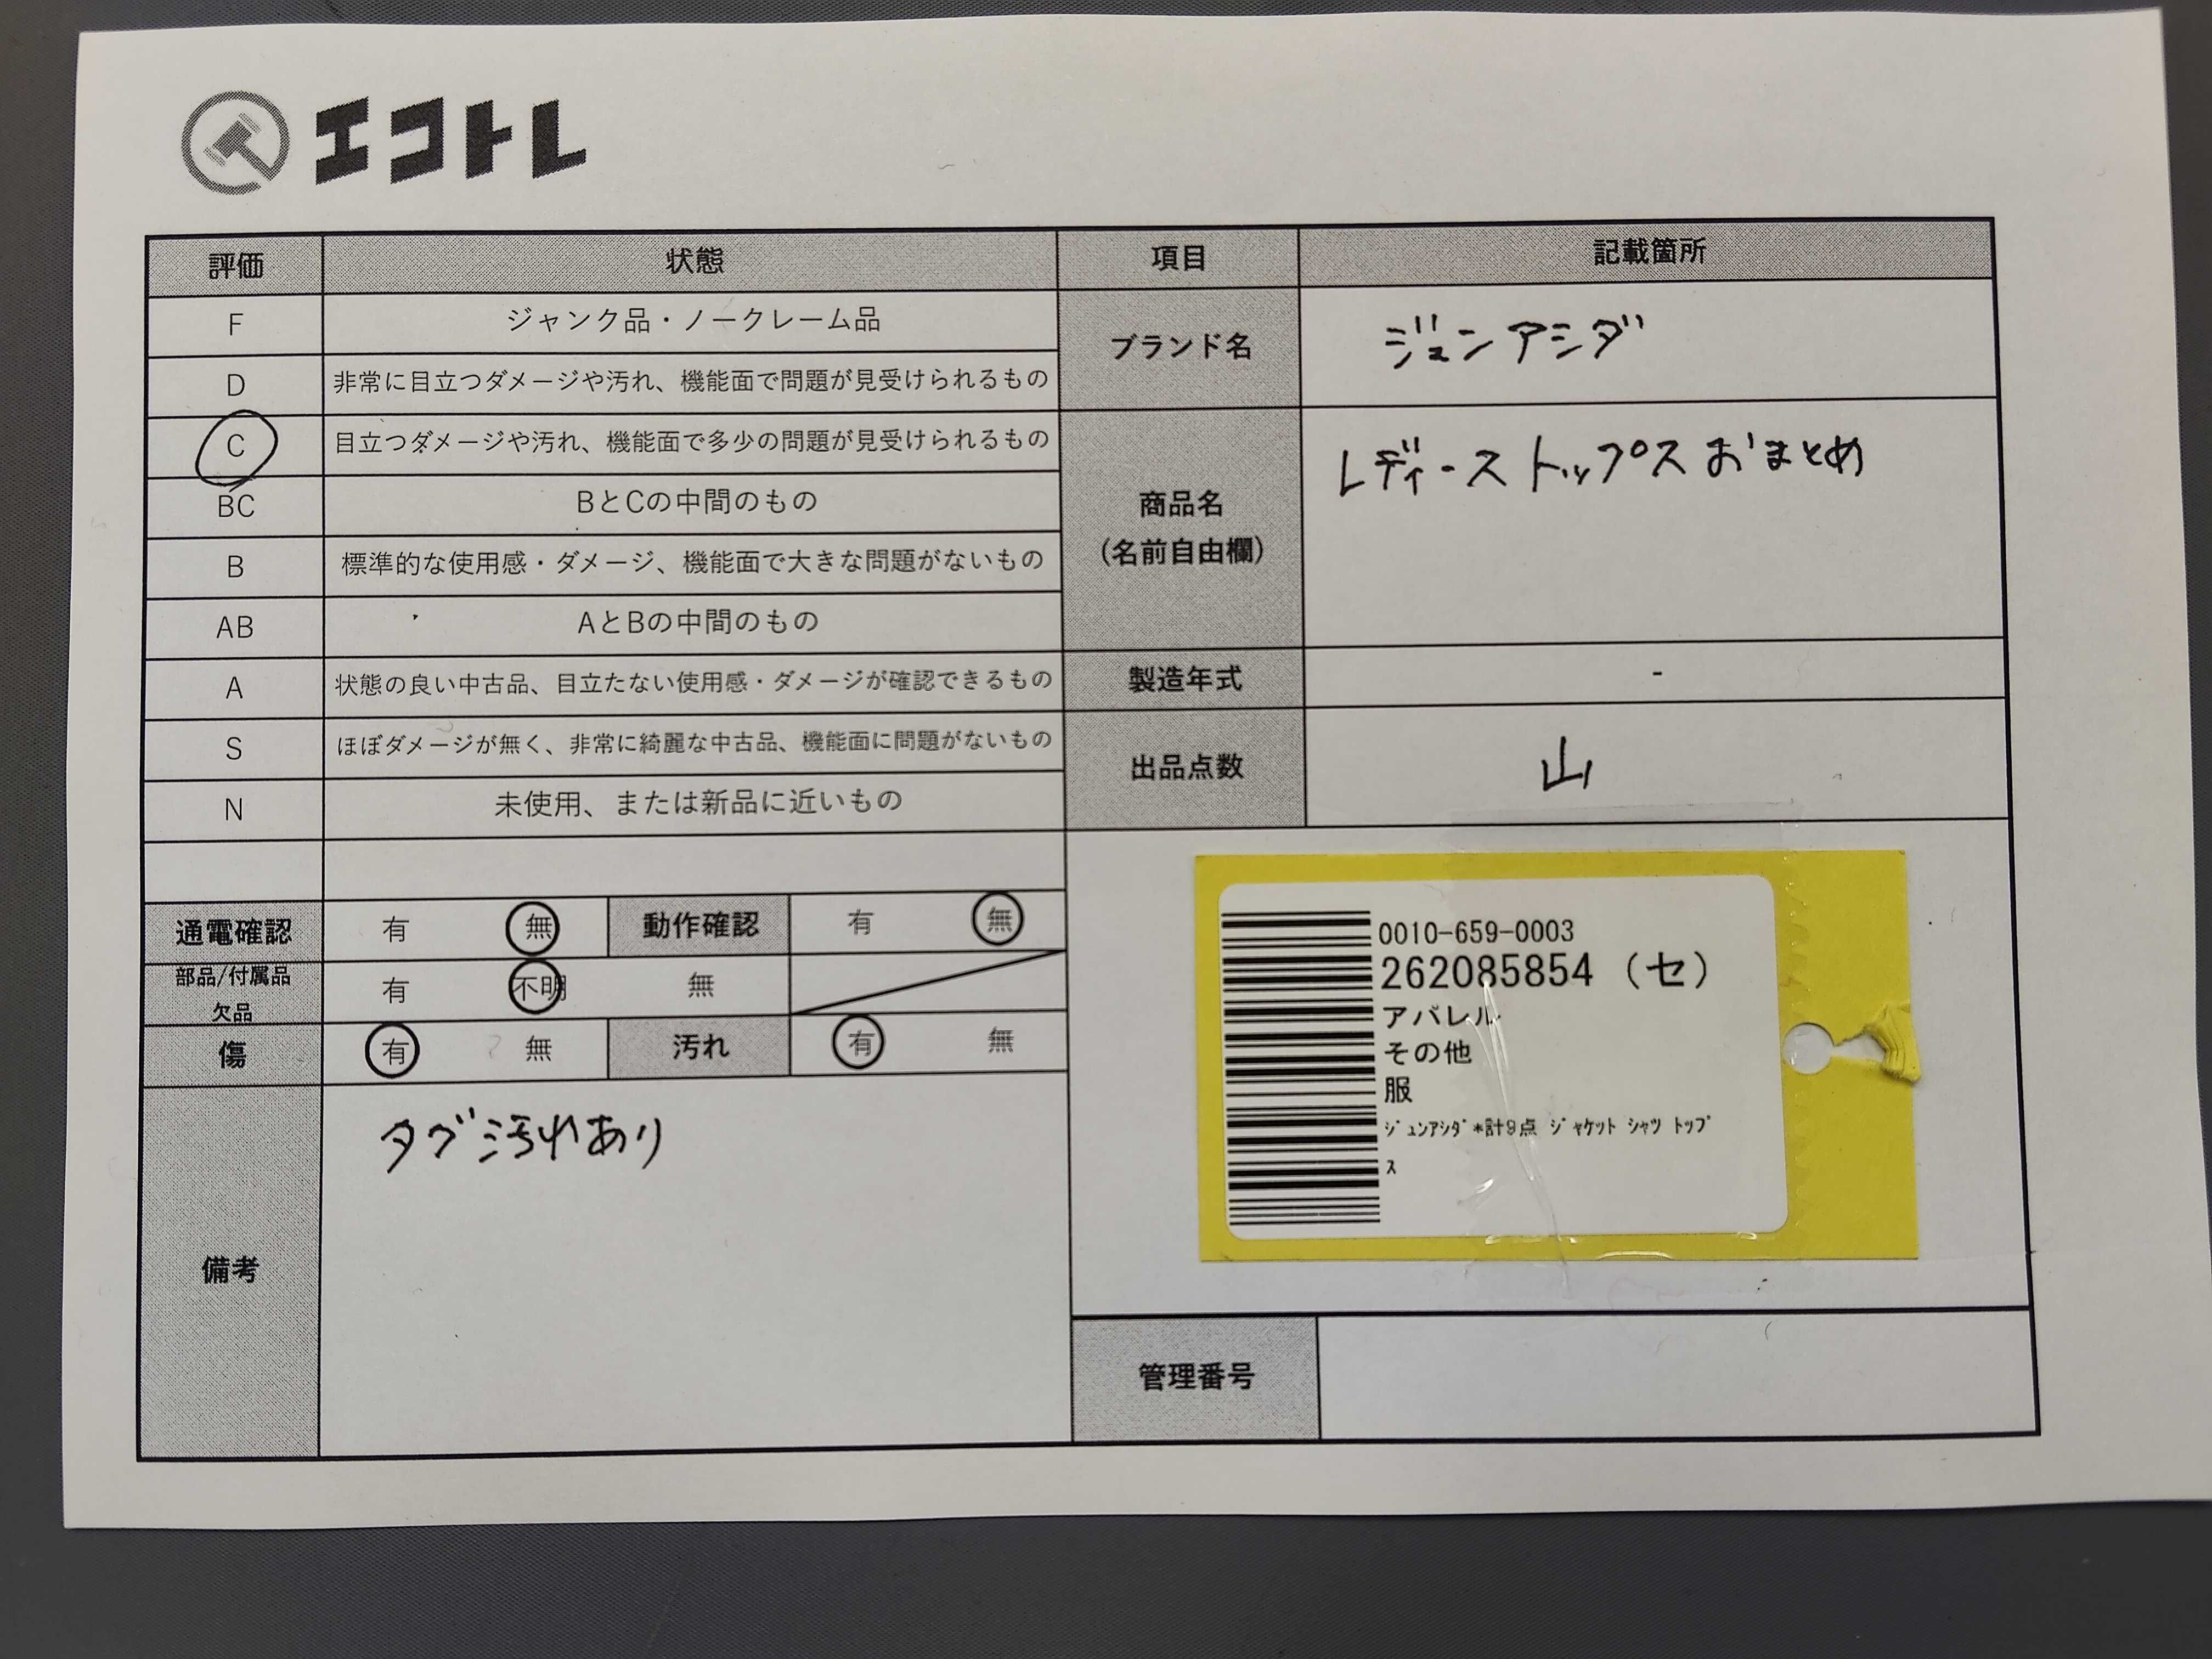 エコトレ
評価 状態 項目 記載箇所
F ジャンク品・ノークレーム品
D 非常に目立つダメージや汚れ、機能面で問題が見受けられるもの
C 目立つダメージや汚れ、機能面で多少の問題が見受けられるもの
BC BとCの中間のもの
B 標準的な使用感・ダメージ、機能面で大きな問題がないもの
AB AとBの中間のもの
A 状態の良い中古品、目立たない使用感・ダメージが確認できるもの
S ほぼダメージが無く、非常に綺麗な中古品、機能面に問題がないもの
N 未使用、または新品に近いもの
ブランド名 ジュンアシダ
商品名
(名前自由欄)
レディース トップス おまとめ
製造年式 -
出品点数 山
通電確認 有 無 動作確認 有 無
部品/付属品
欠品
有 不明 無
傷 有 無 汚れ 有 無
備考 タグ汚れあり
0010-659-0003
262085854 (セ)
アパレル
その他
服
ｼﾞｭﾝｱｼﾀﾞ*計9点 ｼﾞｬｹｯﾄ ｼｬﾂ ﾄｯﾌﾟ
ｽ
管理番号